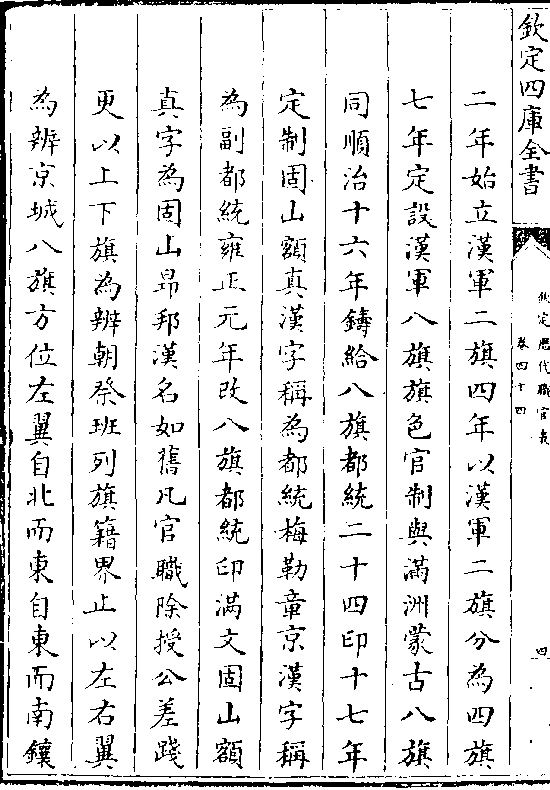 欽定四庫全書
欽定歷代職官表
卷四十四
四
二年始立漢軍二旗四年以漢軍二旗分為四旗
七年定設漢軍八旗旗色官制與滿洲蒙古八旗
同順治十六年鑄給八旗都統二十四印十七年
定制固山額真漢字稱為都統梅勒章京漢字稱
為副都統雍正元年改八旗都統印滿文固山額
真字為固山昂邦漢名如舊凡官職除授公差踐
更以上下旗為辨朝祭班列旗籍界止以左右翼
為辨京城八旗方位左翼自北而東自東而南鑲